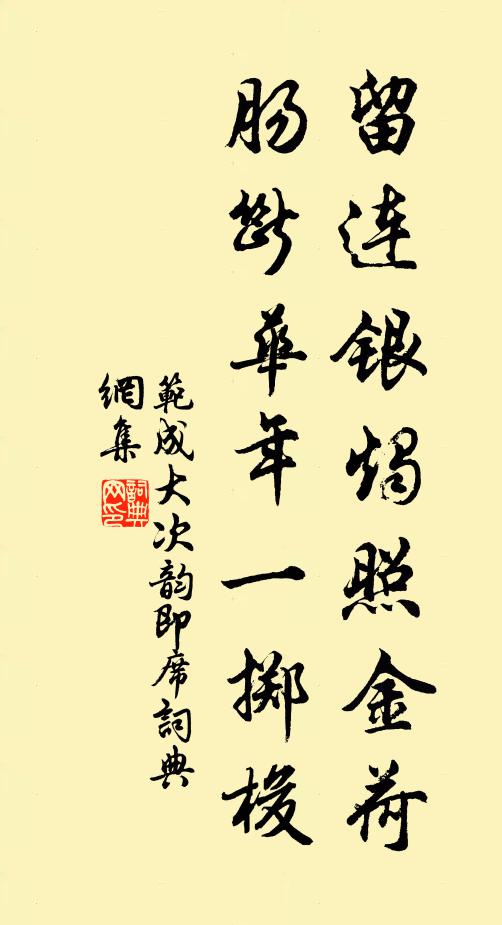 留連銀燭照金荷
腸斷華年一擲梭
範成大次韵即席詞典
網集
詞典
网印